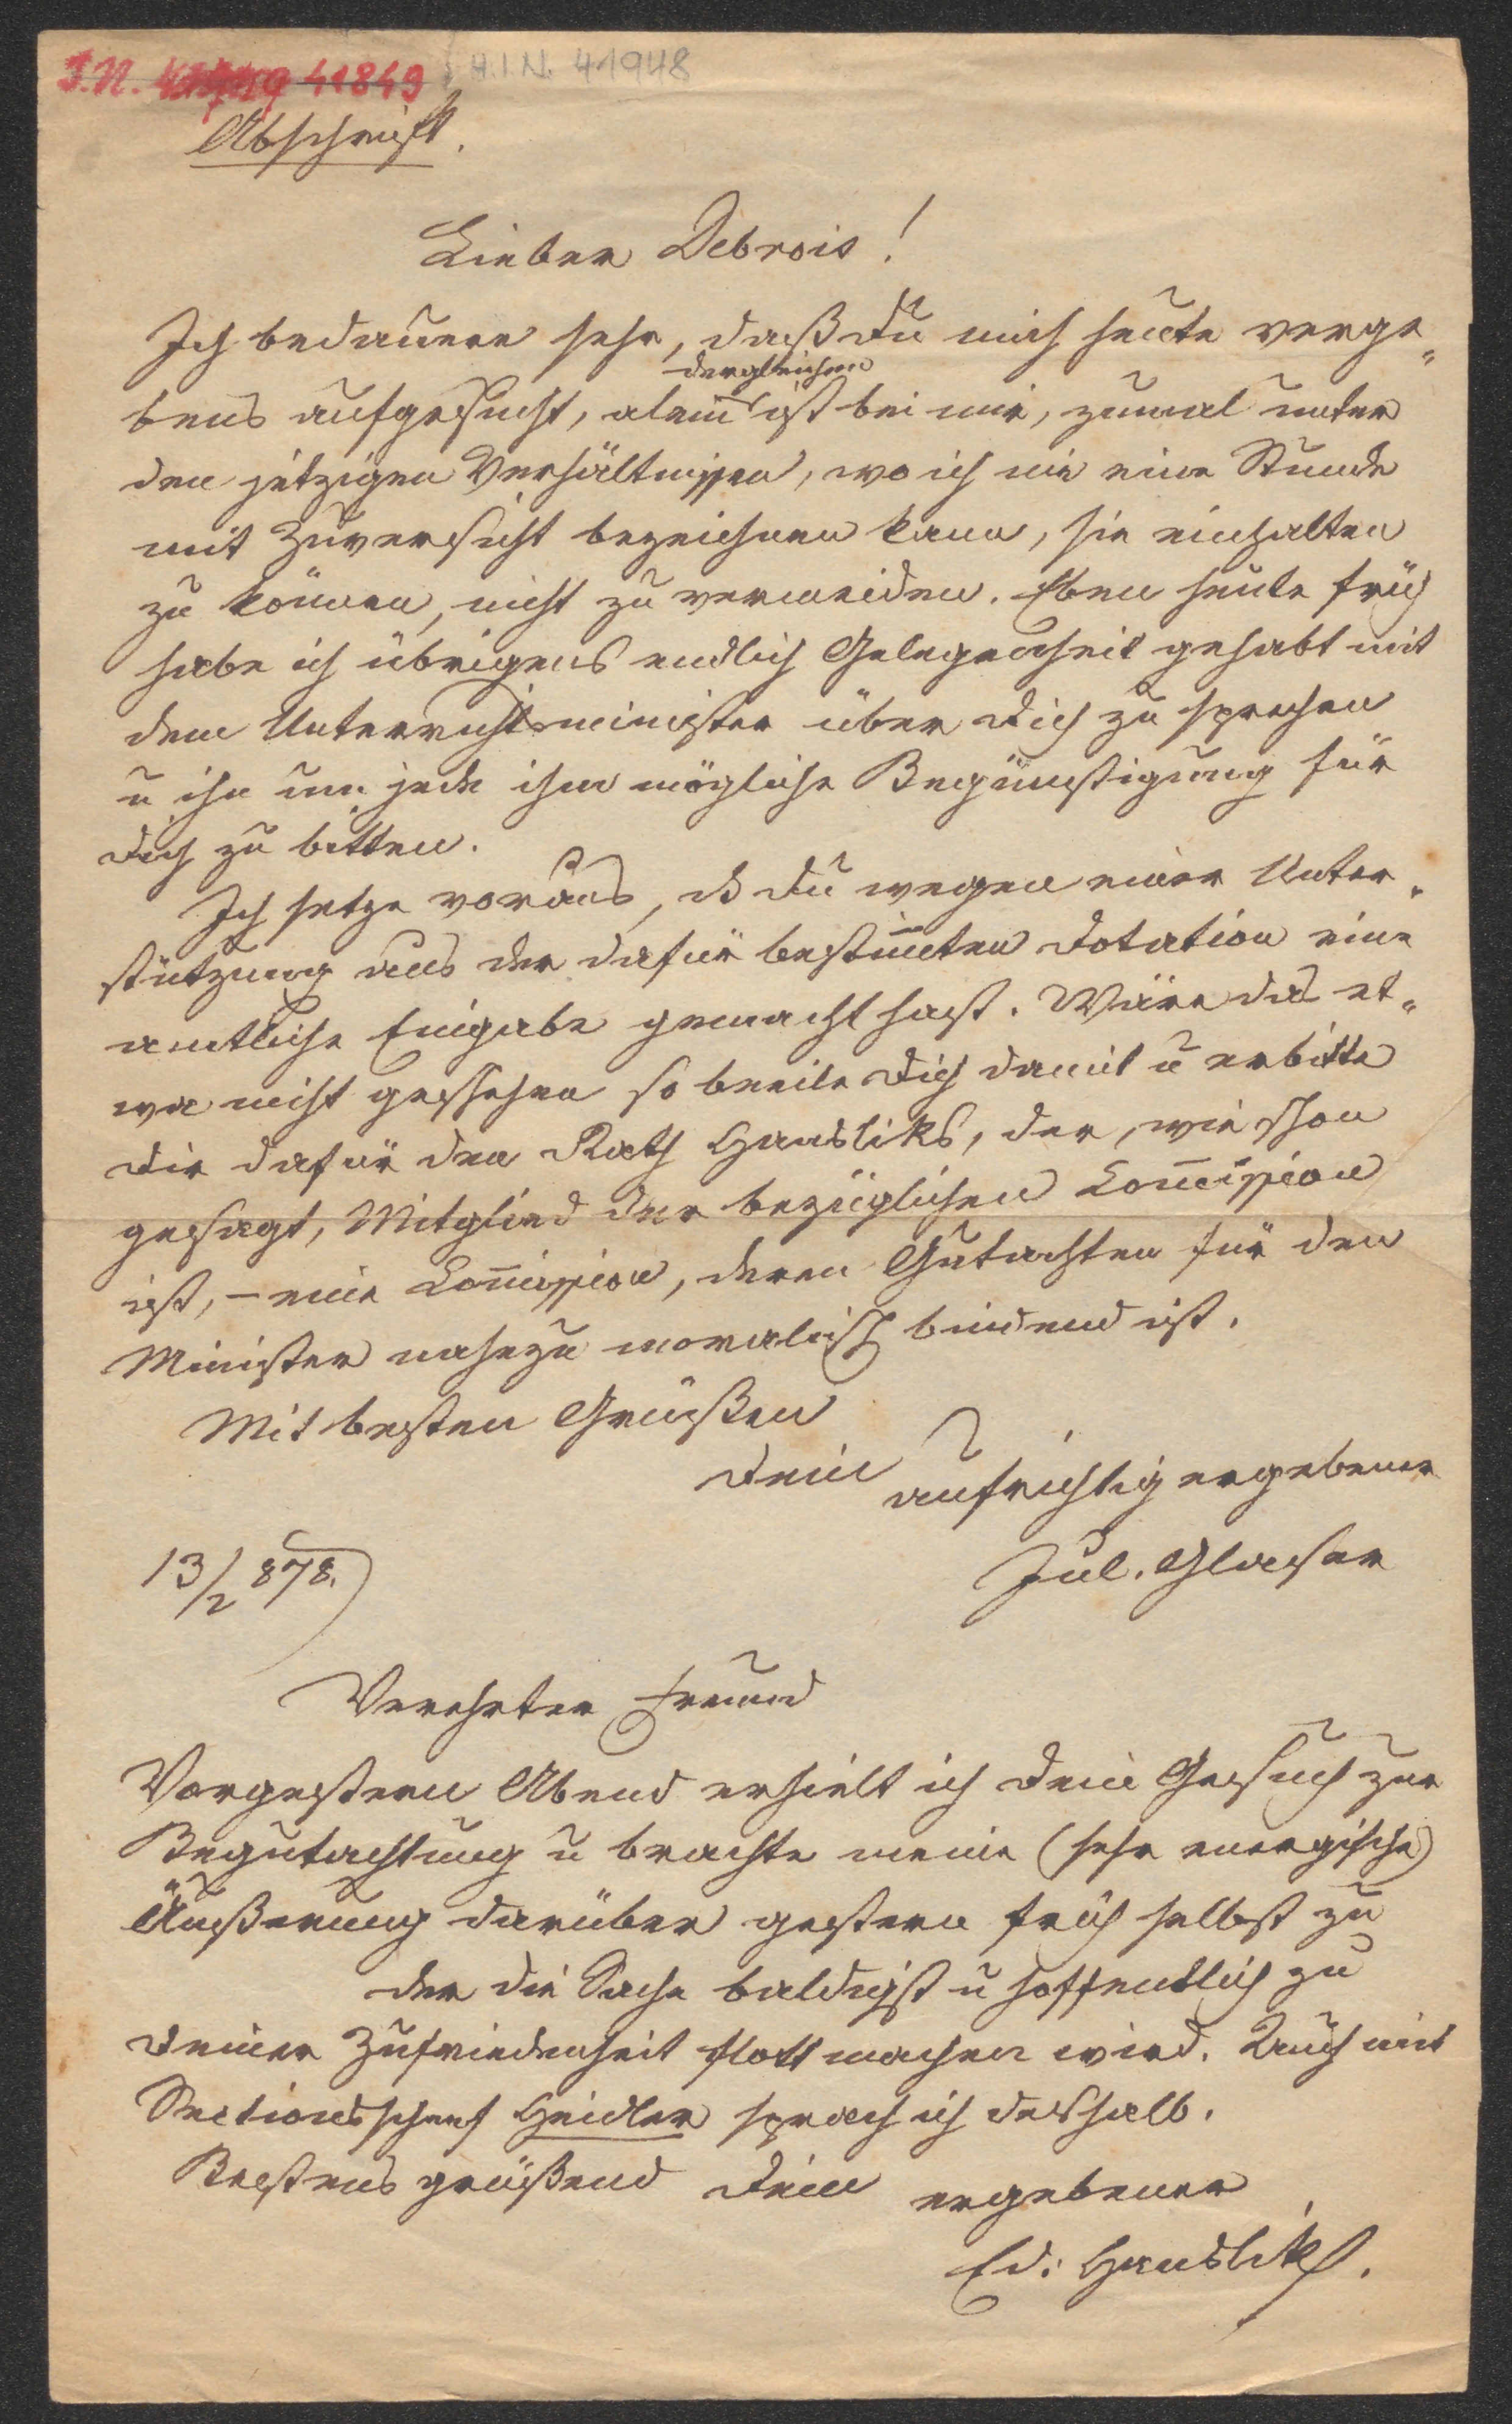 I.N. 41849 H.I.N. 41948
Abschrift.
Lieber Debrois!
Ich bedauere sehr, daß Du mich heute verge„
dergleichen
bens aufgesucht, allein ist bei mir, zumal unter
den jetzigen Verhältnissen, wo ich nie eine Stunde
mit Zuversicht bezeichnen kann, sie einhalten
zu können, nicht zu vermeiden. Eben heute früh
habe ich übrigens endlich Gelegenheit gehabt mit
dem Unterrichtsminister über Dich zu sprechen
u ihn um jede ihm mögliche Begünstigung für
Dich zu bitten.
Ich setze voraus, dß Du wegen einer Unter„
stützung aus der dafür bestim̅ten Dotation eine
amtliche Eingabe gemacht hast. Wäre das et„
wa nicht geschehen so beeile Dich damit u erbitte
Dir dafür den Rath Hansliks, der, wie schon
gesagt, Mitglied der bezüglichen Com̅ission
ist, – eine Com̅ission, deren Gutachten für den
Minister nahezu moralisch bindend ist.
Mit besten Grüßen
Dein aufrichtig ergebener
13/2 878. Jul. Glaser
Verehrter Freund
Vorgestern Abend erhielt ich Dein Gesuch zur
Begutachtung u brachte meine (sehr energische)
Äußerung darüber gestern früh selbst zu
der die Sache baldigst u hoffentlich zu
Deiner Zufriedenheit flott machen wird. Auch mit
Sectionschef Heidler sprach ich deshalb.
Bestens grüßend Dein ergebener
Ed. Hanslik.